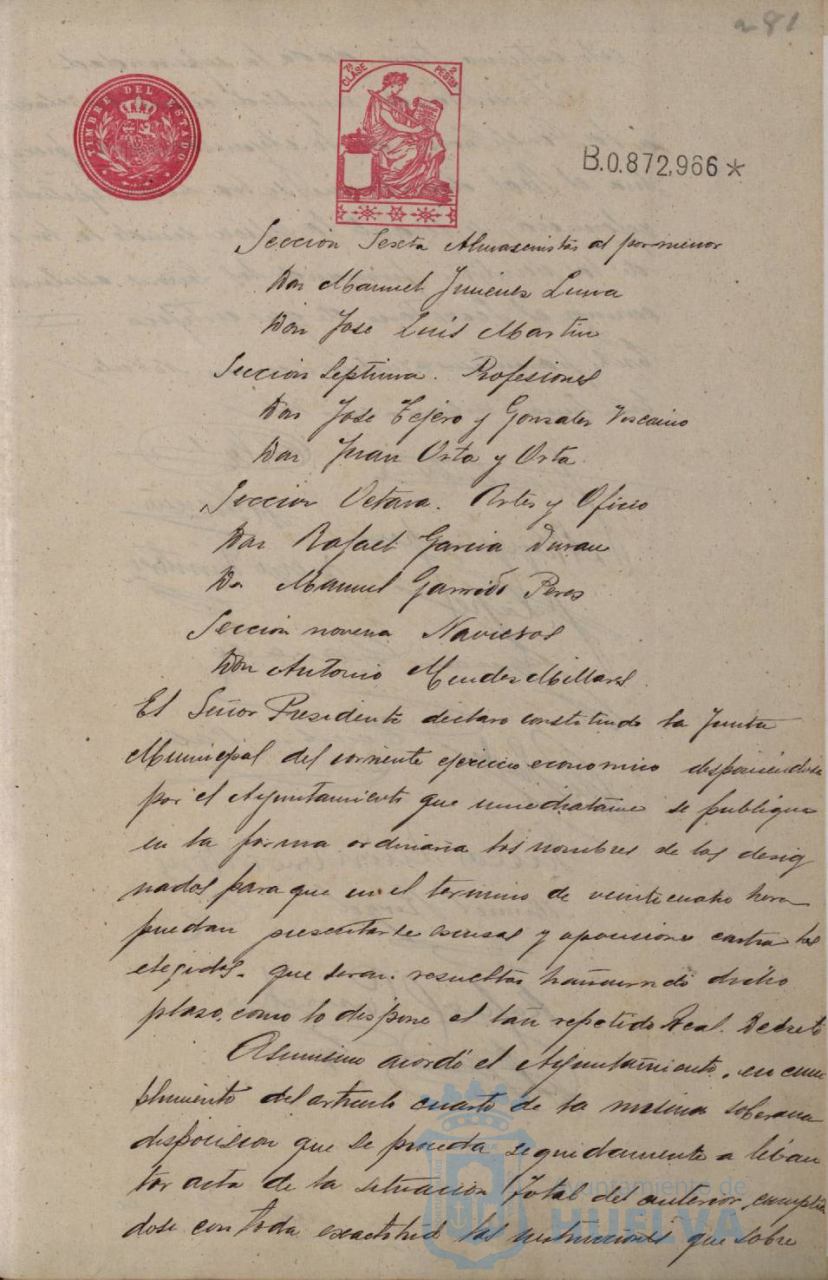 281
TIMBRE DEL ESTADO
7ª CLASE 2 PESETAS
B.0.872,966*
Sección Sexta Almasenistas al por menor
Don Manuel Jimenes Luna
Don Jose Luis Martin
Seccion Septima. Profesiones
Don Jose Tejero y Gonsales Viscaino
Don Juan Orta y Orta
Seccion Octava. Artes y Oficio
Don Rafael Garcia Duran
Dn Manuel Garrido Peres
Sección novena Navieros
Don Antonio Mendes Millares
El Señor Presidente declaro constituido la Junta
Municipal del corriente ejercicio economico disponiendose
por el Ayuntamiento que inmediatame se publique
en la forma ordinaria los nombres de los desig
nados para que en el termino de veinte cuatro horas
puedan presentarse escusas y oposiciones contra los
elegidos. que seran resueltas dicho
plaso, como lo dispone el tan repetido Real Decreto
Asimismo acordó el Ayuntamiento, en cum
plimiento del articulo cuarto de la misma soberana
disposicion que se proceda seguidamente a leban
tar acta de la situacion total del anterior, cumplien
dose con toda exactitud las instrucciones que sobre
Ayuntamiento de
HUELVA